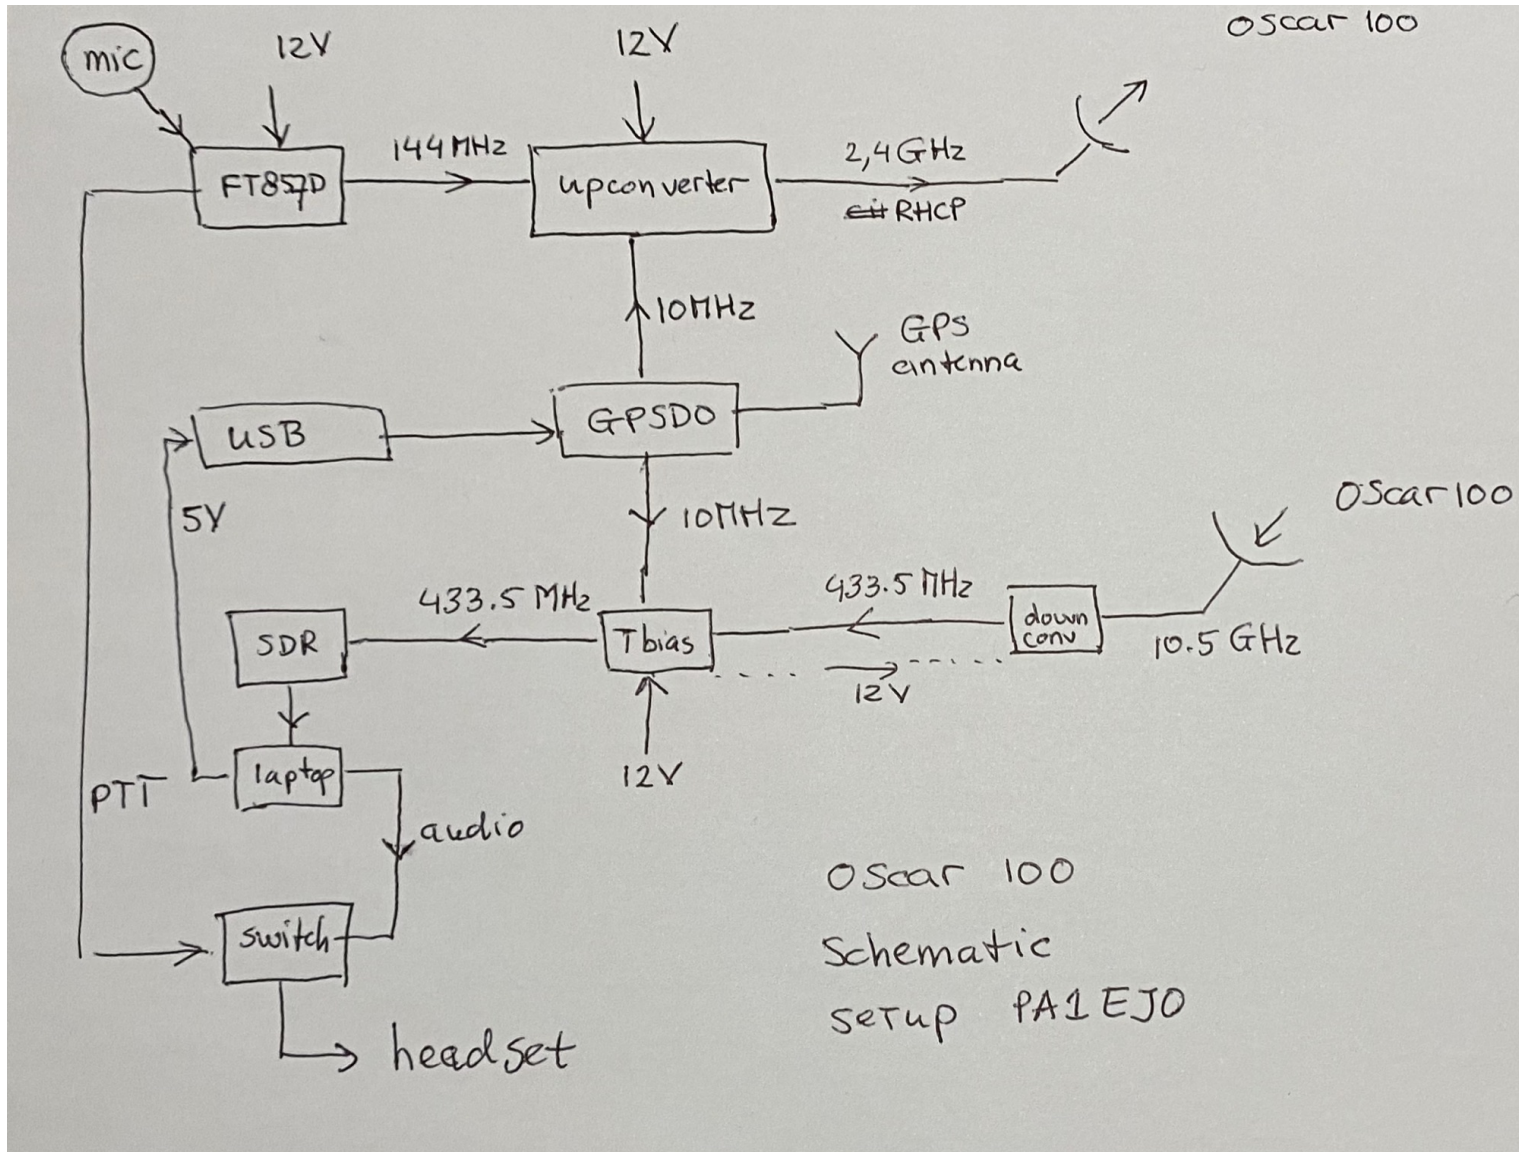 Oscar 100
mic
12V
12V
FT857D
144MHz
upconverter
2,4GHz
RHCP
10MHz
GPS
antenna
USB
GPSDO
5V
10MHz
Oscar100
433.5 MHz
433.5 MHz
SDR
Tbias
down
conv
10.5 GHz
12V
laptop
PTT
12V
audio
switch
headset
Oscar 100
Schematic
setup PA1EJO